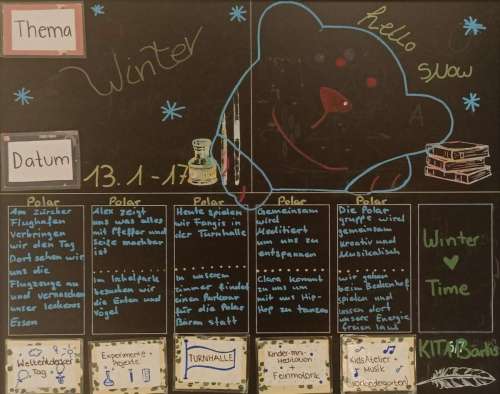 Thema
Winter
hello
SNOW
Datum
13.1-17
Polar
Polar
Polar
Polar
Polar
Am Zürcher
Flughafen
verbringen
wir den Tag
Dort sehen wir
uns die
Flugzeuge an
und vernaschen
unser leckeres
Essen
Alex zeigt
uns was alles
mit Pfeffer und
Seife machbar
ist
Im Irchelpark
besuchen wir
die Enten und
Vögel
Heute spielen
wir Fangis in
der Turnhalle
In unserem
Zimmer findet
ein
für die Polar
Bären statt
Gemeinsam
wird
Meditiert
um uns zu
entspannen
Clara kommt
zu uns um
mit uns Hip-
Hop zu tanzen
Die Polar
gruppe wird
gemeinsam
kreativ und
Musikalisch
wir gehen
beim
spielen und
lassen dort
unsere Energie
freien lauf
Winter
Time
KITA
Weltentdecker
Tag
Experimente +
Projekte
TURNHALLE
Kinder-
meditationen
+
Feinmotorik
Kids Atelier +
Musik